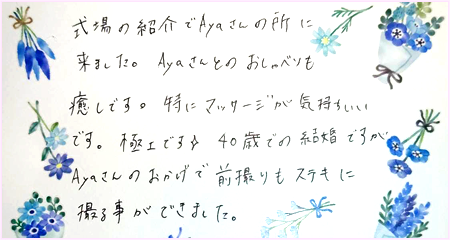 式場の紹介でAyaさんの所に
来ました。Ayaさんとのおしゃべりも
癒しです。特にマッサージが気持ちいい
です。極上です☆ 40歳での結婚ですが
Ayaさんのおかげで前撮りもステキに
撮る事ができました。